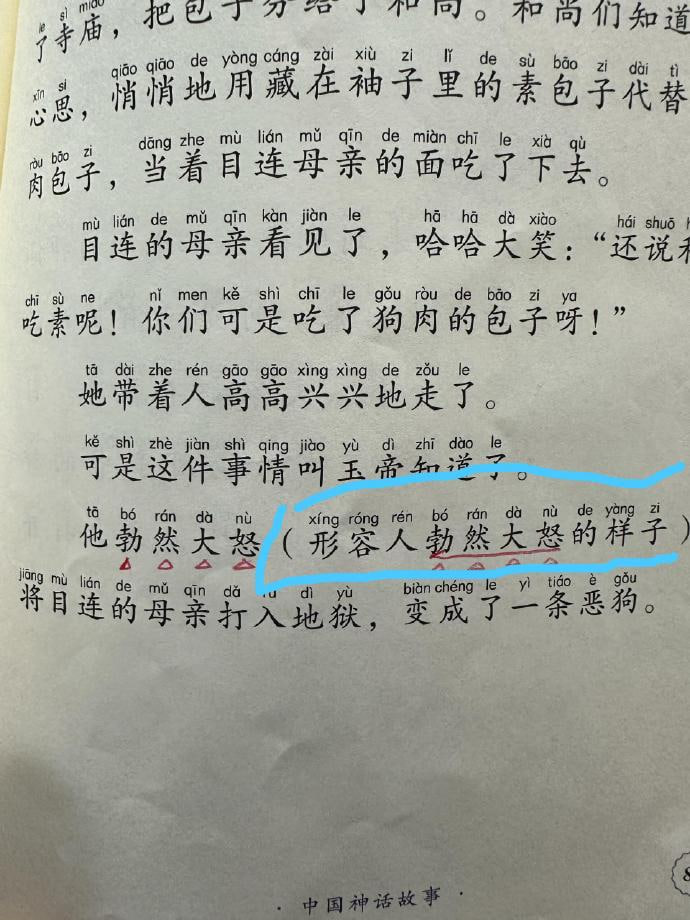 le sì miào
了寺庙，把包子分给了和尚。和尚们知道
xīn si qiāo qiāo de yòng cáng zài xiù zi lǐ de sù bāo zi dài tì
心思，悄悄地用藏在袖子里的素包子代替
ròu bāo zi dāng zhe mù lián mǔ qīn de miàn chī le xià qù
肉包子，当着目连母亲的面吃了下去。
mù lián de mǔ qīn kàn jiàn le hā hā dà xiào hái shuō
目连的母亲看见了，哈哈大笑：“还说
chī sù ne nǐ men kě shì chī le gǒu ròu de bāo zi ya
吃素呢！你们可是吃了狗肉的包子呀！”
tā dài zhe rén gāo gāo xìng xìng de zǒu le
她带着人高高兴兴地走了。
kě shì zhè jiàn shì qing jiào yù dì zhī dào le
可是这件事情叫玉帝知道了。
tā bó rán dà nù xíng róng rén bó rán dà nù de yàng zi
他勃然大怒（形容人勃然大怒的样子）
jiāng mù lián de mǔ qīn dǎ dì yù biàn chéng le yì tiáo è gǒu
将目连的母亲打入地狱，变成了一条恶狗。
· 中国神话故事 ·